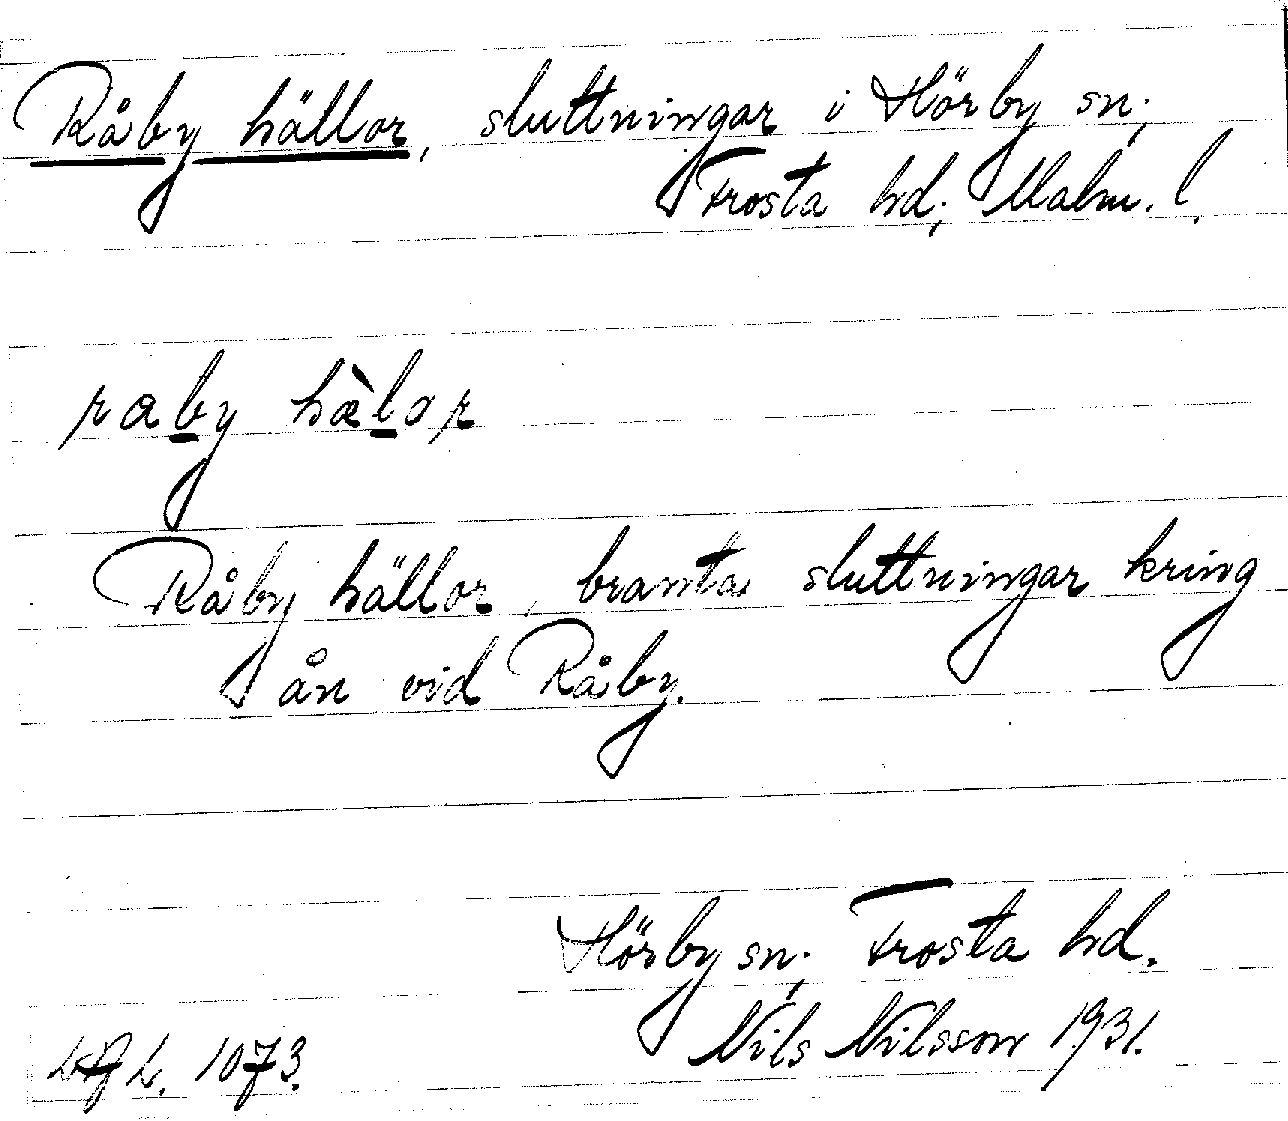 Råby hällor, sluttningar i Hörby sn;
Frosta hd; Malm. l.
raby hàlor
Råby hällor, branta sluttningar kring
ån vid Råby.
Hörby sn; Frosta hd.
1073. Nils Nilsson 1931.